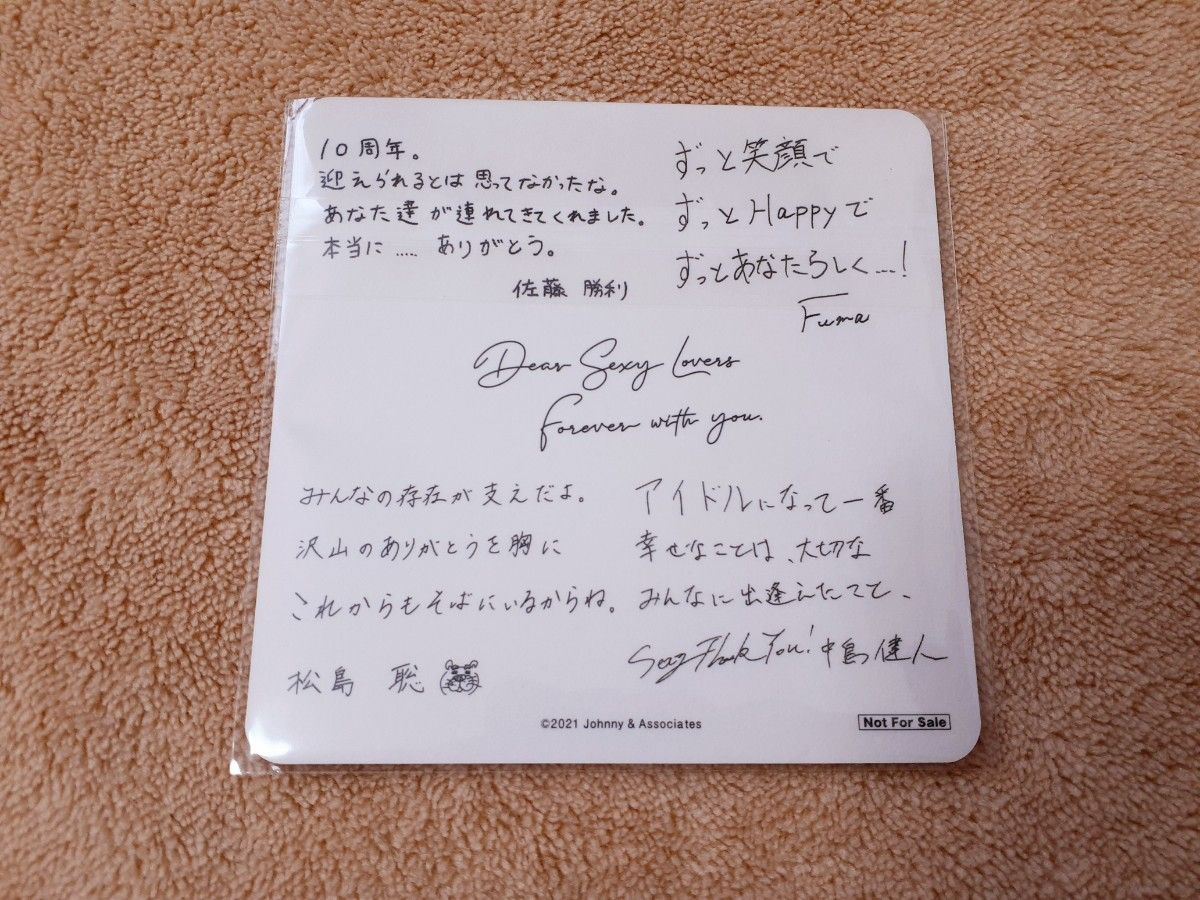 10周年。
迎えられるとは思ってなかったな。
あなた達が連れてきてくれました。
本当に……ありがとう。
佐藤 勝利
ずっと笑顔で
ずっとHappyで
ずっとあなたらしく…!
Fuma
Dear Sexy Lovers
Forever with you.
みんなの存在が支えだよ。
沢山のありがとうを胸に
これからもそばにいるからね。
松島 聡
アイドルになって一番
幸せなことは、大切な
みんなに出逢えたこと、
Sexy Thank You! 中島健人
©2021 Johnny & Associates
Not For Sale